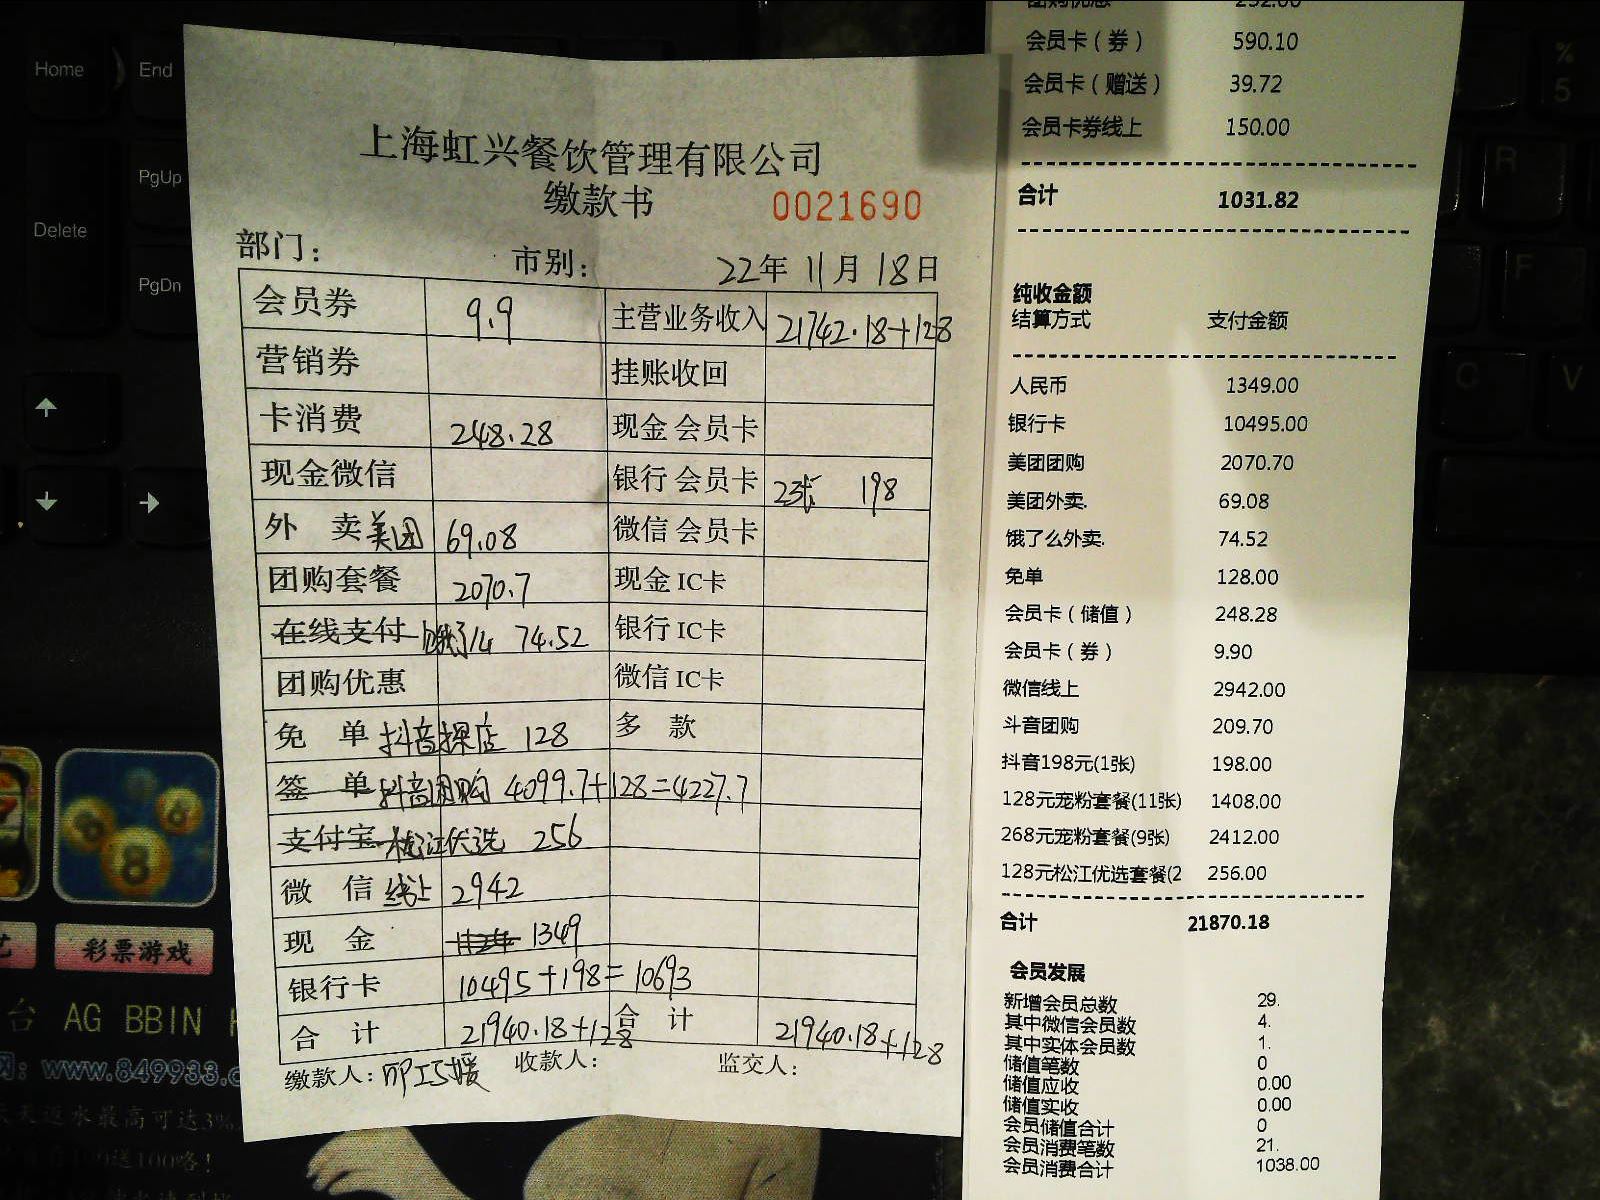 Home
End
PgUp
Delete
PgDn
上海虹兴餐饮管理有限公司
缴款书
0021690
部门：
市别：
22年 11月 18日
会员券 9.9 主营业务收入 21742.18+128
营销券 挂账收回
卡消费 248.28 现金 会员卡
现金微信 银行 会员卡 2张 198
外 卖 美团 69.08 微信 会员卡
团购套餐 2070.7 现金 IC卡
在线支付 饿了么 74.52 银行 IC卡
团购优惠 微信 IC卡
免 单 抖音探店 128 多 款
签 单 抖音团购 4099.7+128=4227.7
支付宝 松江优选 256
微 信 线上 2942
现 金 1349
银行卡 10495+198=10693
合 计 21940.18+128 合 计 21940.18+128
缴款人： 收款人： 监交人：
团购优惠 252.00
会员卡（券） 590.10
会员卡（赠送） 39.72
会员卡券线上 150.00
合计 1031.82
纯收金额
结算方式 支付金额
人民币 1349.00
银行卡 10495.00
美团团购 2070.70
美团外卖. 69.08
饿了么外卖. 74.52
免单 128.00
会员卡（储值） 248.28
会员卡（券） 9.90
微信线上 2942.00
斗音团购 209.70
抖音198元(1张) 198.00
128元宠粉套餐(11张) 1408.00
268元宠粉套餐(9张) 2412.00
128元松江优选套餐(2 256.00
合计 21870.18
会员发展
新增会员总数 29.
其中微信会员数 4.
其中实体会员数 1.
储值笔数 0
储值应收 0.00
储值实收 0.00
会员储值合计 0
会员消费笔数 21.
会员消费合计 1038.00
%
5
R
F
C
V
8
6
8
彩票游戏
台 AG BBIN
www.849933.c
天天返水最高可达3%
送100咯！